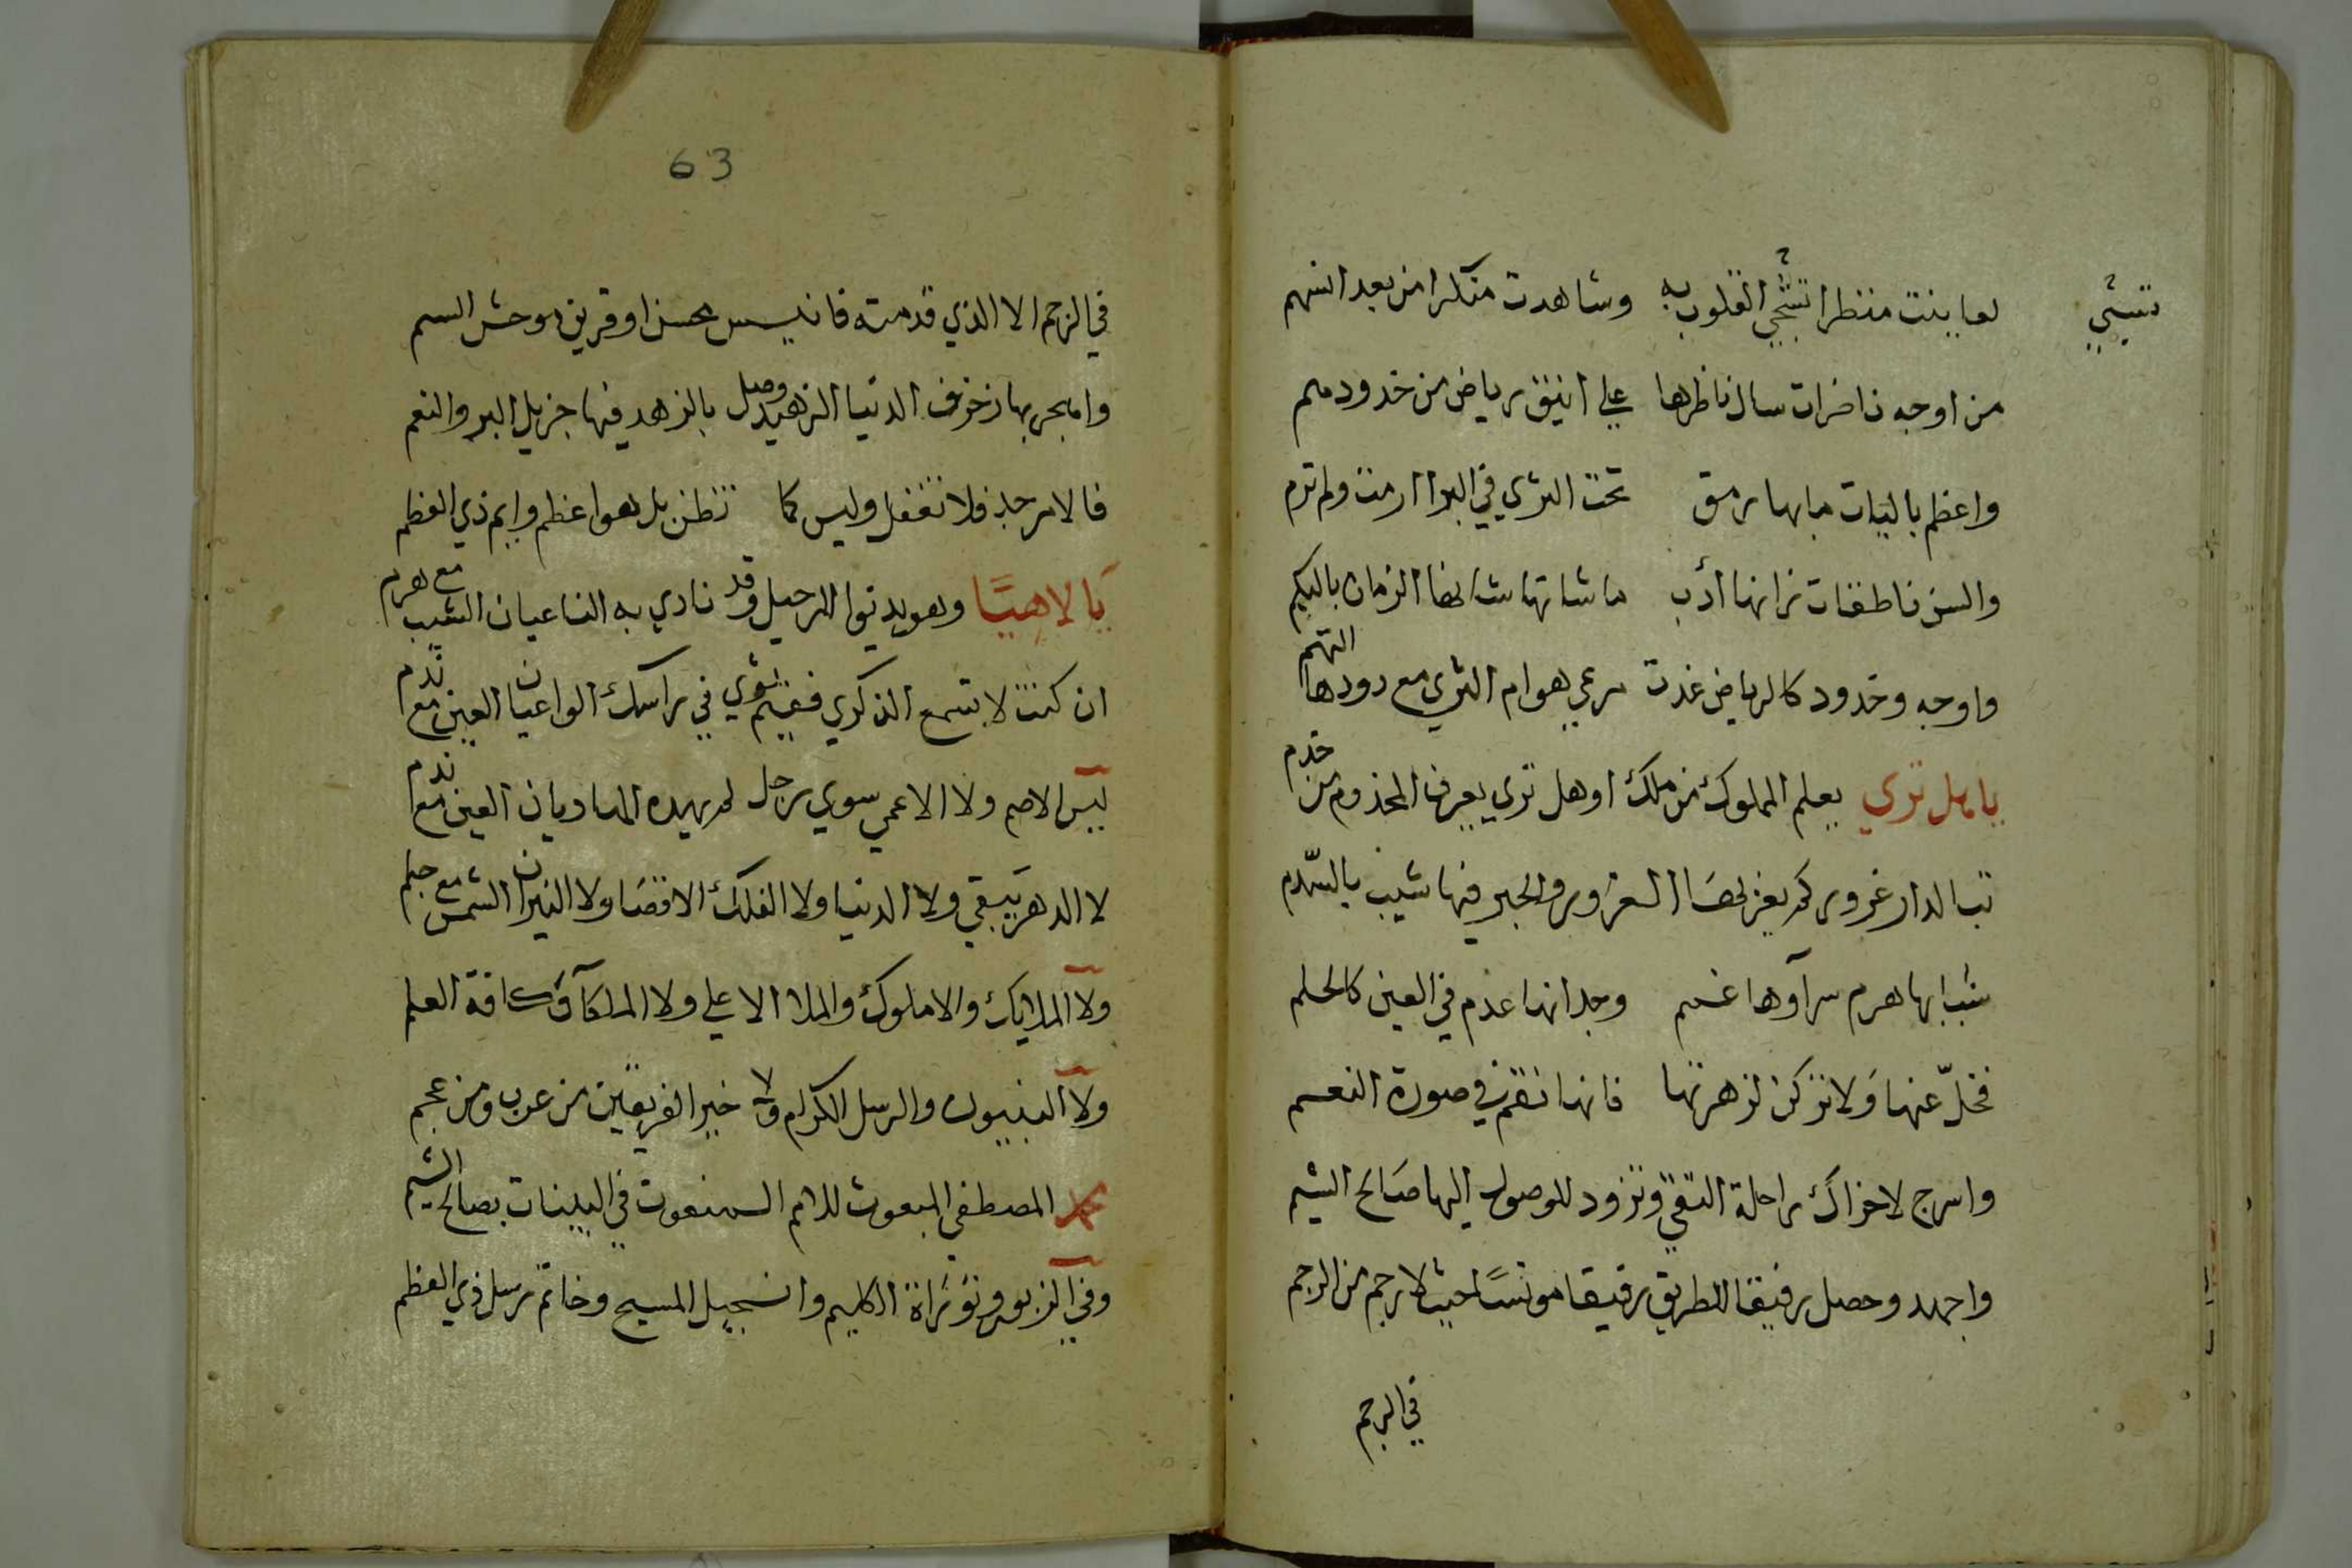 تشجي
لعاينت منظرا تشجي القلوب به وشاهدت منكرا من بعد انسهم
من اوجه ناضرات سال ناظرها علي انيق رياض من خدودهم
واعظم باليات ما بها رمق تحت الثري في البرا ارمت ولم ترم
والسن ناطقات زانها أدب ما شانها شانها الزمان بالبكم
واوجه وخدود كالرياض غدت مرعي هوام الثري مع دودها التهم
يا هل تري يعلم المملوك من ملك او هل تري يعرف المخدوم من خدم
تبا لدار غرور كم يغر بها الغرور والخير فيها شيب بالسدم
شبابها هرم سرآوها غمم وجدانها عدم في العين كالحلم
فخلّ عنها ولا تركن لزهرتها فانها نقم في صورة النعم
واسرج لاخراك راحلة التقي وتزود للوصول اليها صالح الشيم
واجهد وحصل رفيقا للطريق رفيقا مونسًا حيث لا رحم من الرحم
في الرحم
63
في الرحم الا الذي قدمته فانيس محسن او قرين موحش السم
واهجر بها زخرف الدنيا الزهيد وصل بالزهد فيها جزيل البر والنعم
فالامر جد فلا تغفل وليس كما تظن بل هو اعظم وايم ذي العظم
يا لاهيًا وهو يدنو الرحيل وقد نادي به الناعيان الشيب مع هرم
ان كنت لا تسمع الذكري ففيم ثوي في راسك الواعيان العين مع ندم
ليس الاصم ولا الاعمي سوي رجل لم يهده الهاديان العين مع ندم
لا الدهر يبقي ولا الدنيا ولا الفلك الاقصا ولا النيران الشمس مع جلم
ولا الملايك والاملوك والملا الاعلي ولا الملكآؤ كافة العلم
ولا النبيون والرسل الكرام ولا خير الفريقين من عرب ومن عجم
محمد المصطفي المبعوث للامم المنعوت في البينات بصالح الشيم
وفي الزبور وتوراة الكليم وانجيل المسيح وخاتم رسل ذي العظم